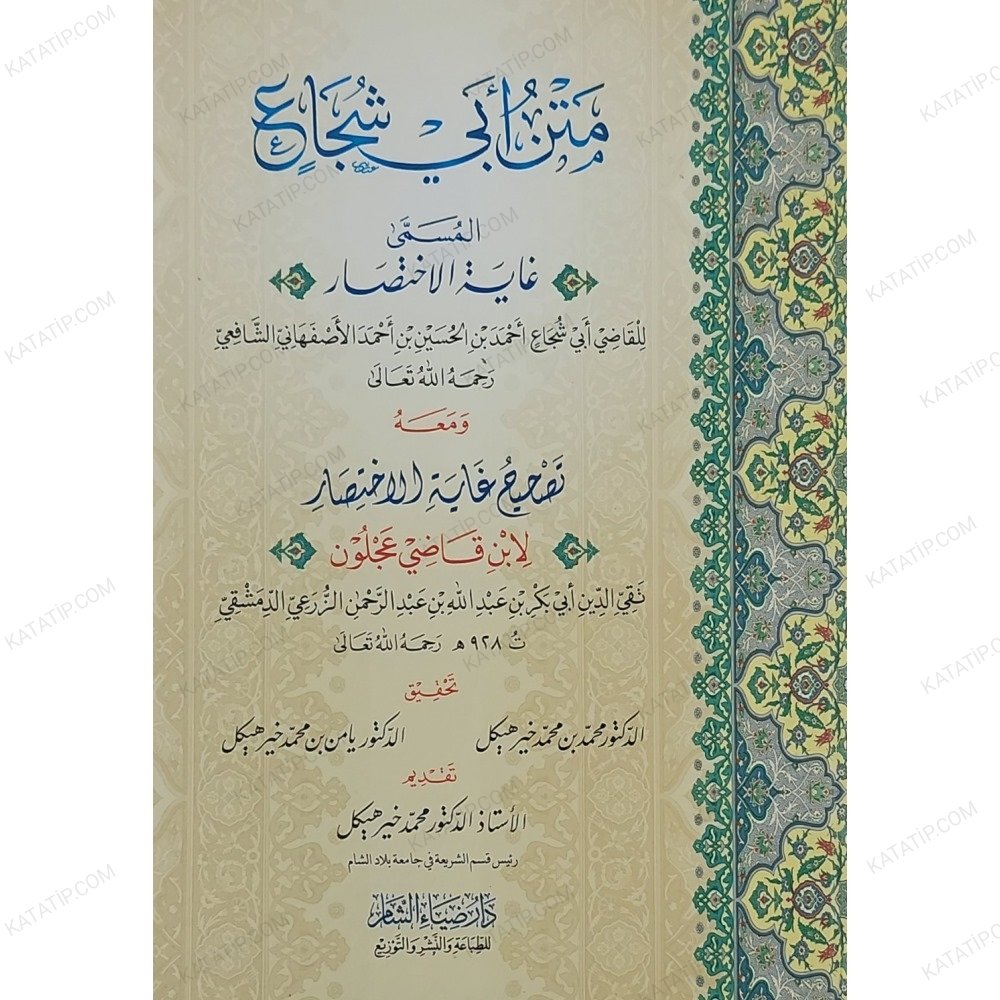 مَتْنُ أَبِي شُجَاعٍ
المُسَمَّى
غَايَةَ الِاخْتِصَار
لِلْقَاضِي أَبِي شُجَاعٍ أَحْمَدَ بْنِ الحُسَيْنِ بْنِ أَحْمَدَ الأَصْفَهَانِيِّ الشَّافِعِيِّ
رَحِمَهُ اللهُ تَعَالَى
وَمَعَهُ
تَصْحِيحُ غَايَةِ الِاخْتِصَارِ
لِابْنِ قَاضِي عَجْلُوْن
تَقِيِّ الدِّينِ أَبِي بَكْرِ بْنِ عَبْدِ اللهِ بْنِ عَبْدِ الرَّحْمٰنِ الزُّرَعِيِّ الدِّمَشْقِيِّ
تُ ٩٢٨ هـ رَحِمَهُ اللهُ تَعَالَى
تَحْقِيْق
الدّكتور محمّد بن محمّد خير هيكل الدكتور يامن بن محمّد خير هيكل
تَقْدِيم
الأستاذ الدّكتور محمّد خير هيكل
رئيس قسم الشريعة في جامعة بلاد الشام
دَارُ ضِيَاءِ الشَّام
لِلطِّبَاعَةِ وَالنَّشْرِ وَالتَّوْزِيعِ
KATATIP.COM